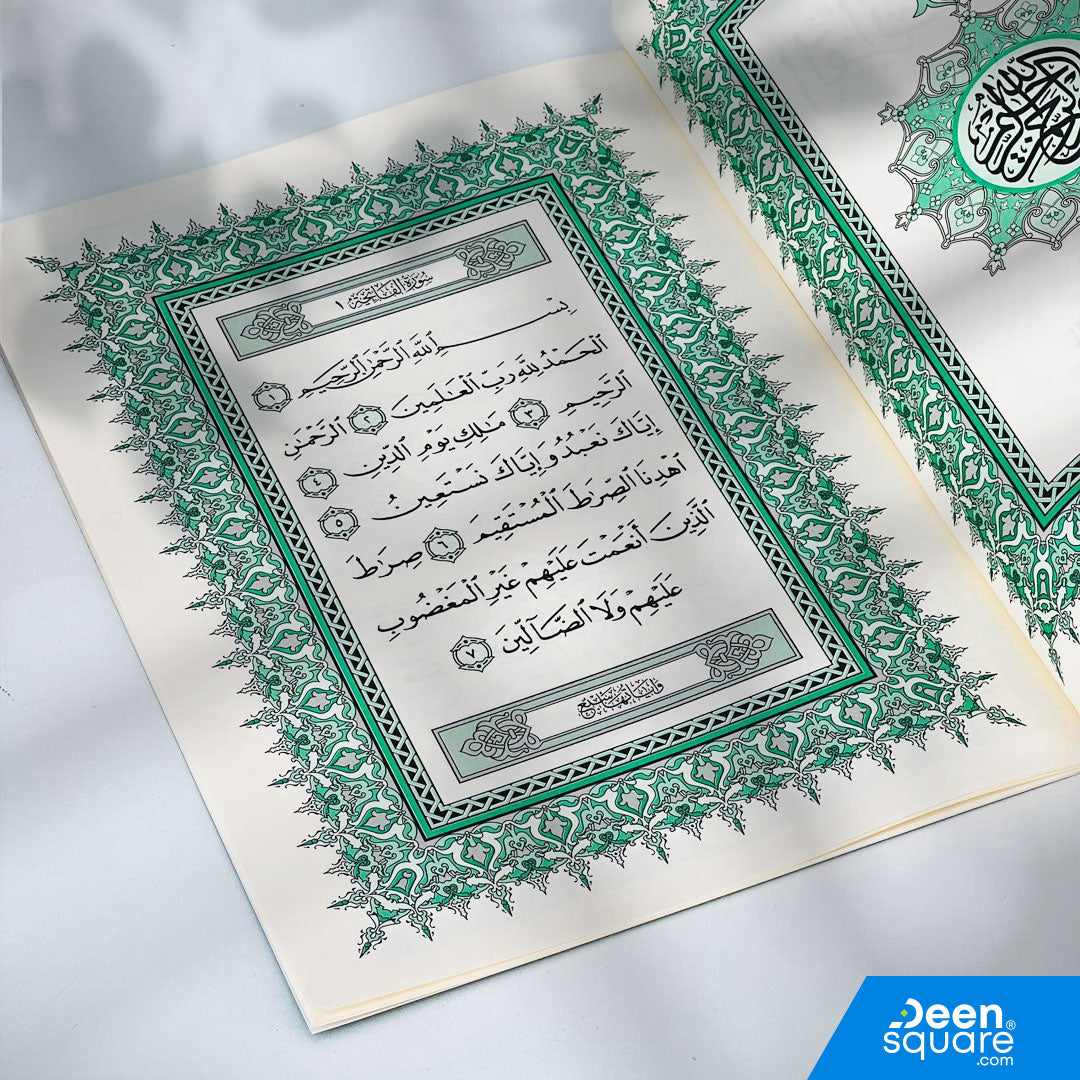 سُورَةُ الفَاتِحَةِ ١
بِسْمِ ٱللَّهِ ٱلرَّحْمَٰنِ ٱلرَّحِيمِ ١
ٱلْحَمْدُ لِلَّهِ رَبِّ ٱلْعَٰلَمِينَ ٢ ٱلرَّحْمَٰنِ
ٱلرَّحِيمِ ٣ مَٰلِكِ يَوْمِ ٱلدِّينِ ٤
إِيَّاكَ نَعْبُدُ وَإِيَّاكَ نَسْتَعِينُ ٥
ٱهْدِنَا ٱلصِّرَٰطَ ٱلْمُسْتَقِيمَ ٦ صِرَٰطَ
ٱلَّذِينَ أَنْعَمْتَ عَلَيْهِمْ غَيْرِ ٱلْمَغْضُوبِ
عَلَيْهِمْ وَلَا ٱلضَّآلِّينَ ٧
Deen®
square
.com